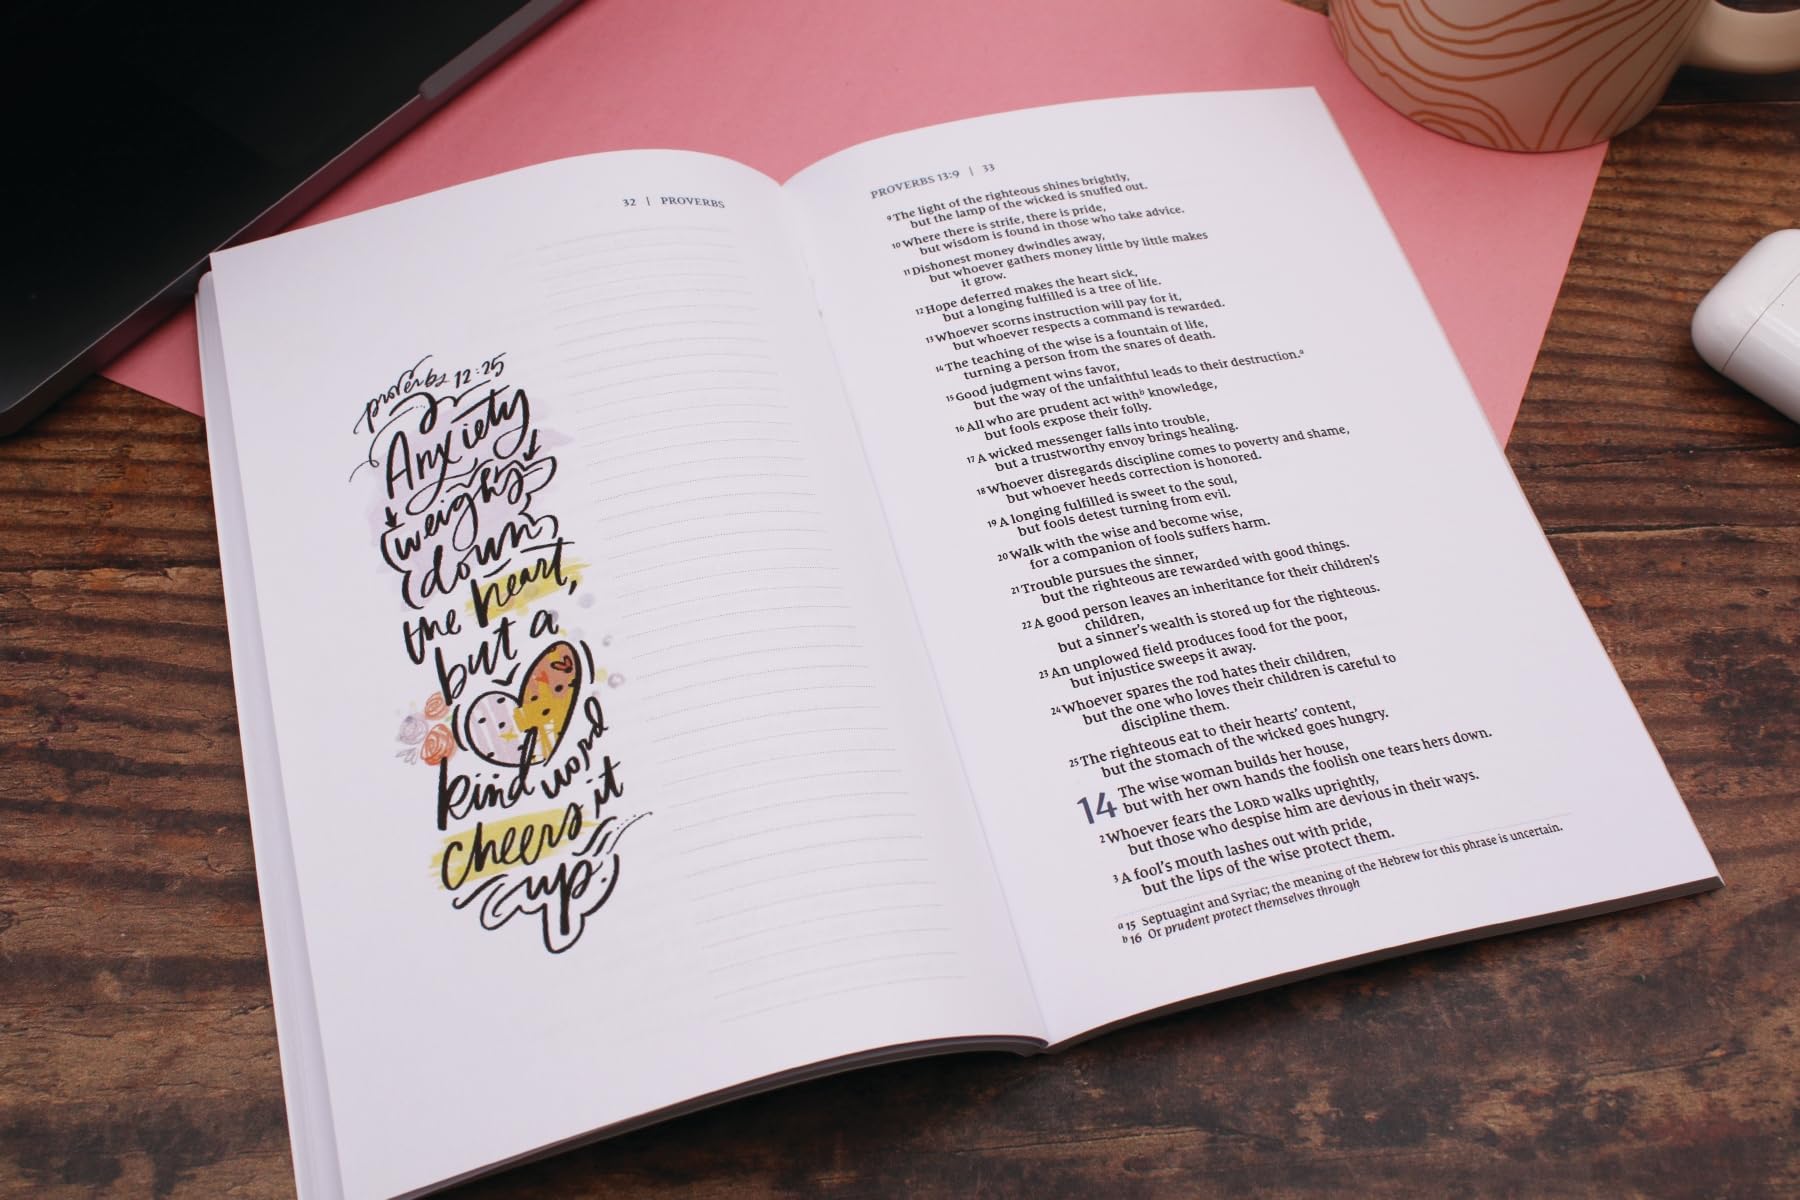 32 | PROVERBS
proverbs 12:25
Anxiety
weighs
down
the heart,
but a
kind word
cheers it
up.
PROVERBS 13:9 | 33
9 The light of the righteous shines brightly,
but the lamp of the wicked is snuffed out.
10 Where there is strife, there is pride,
but wisdom is found in those who take advice.
11 Dishonest money dwindles away,
but whoever gathers money little by little makes
it grow.
12 Hope deferred makes the heart sick,
but a longing fulfilled is a tree of life.
13 Whoever scorns instruction will pay for it,
but whoever respects a command is rewarded.
14 The teaching of the wise is a fountain of life,
turning a person from the snares of death.
15 Good judgment wins favor,
but the way of the unfaithful leads to their destruction.a
16 All who are prudent act withb knowledge,
but fools expose their folly.
17 A wicked messenger falls into trouble,
but a trustworthy envoy brings healing.
18 Whoever disregards discipline comes to poverty and shame,
but whoever heeds correction is honored.
19 A longing fulfilled is sweet to the soul,
but fools detest turning from evil.
20 Walk with the wise and become wise,
for a companion of fools suffers harm.
21 Trouble pursues the sinner,
but the righteous are rewarded with good things.
22 A good person leaves an inheritance for their children's
children,
but a sinner's wealth is stored up for the righteous.
23 An unplowed field produces food for the poor,
but injustice sweeps it away.
24 Whoever spares the rod hates their children,
but the one who loves their children is careful to
discipline them.
25 The righteous eat to their hearts' content,
but the stomach of the wicked goes hungry.
14 The wise woman builds her house,
but with her own hands the foolish one tears hers down.
2 Whoever fears the LORD walks uprightly,
but those who despise him are devious in their ways.
3 A fool's mouth lashes out with pride,
but the lips of the wise protect them.
a 15 Septuagint and Syriac; the meaning of the Hebrew for this phrase is uncertain.
b 16 Or prudent protect themselves through